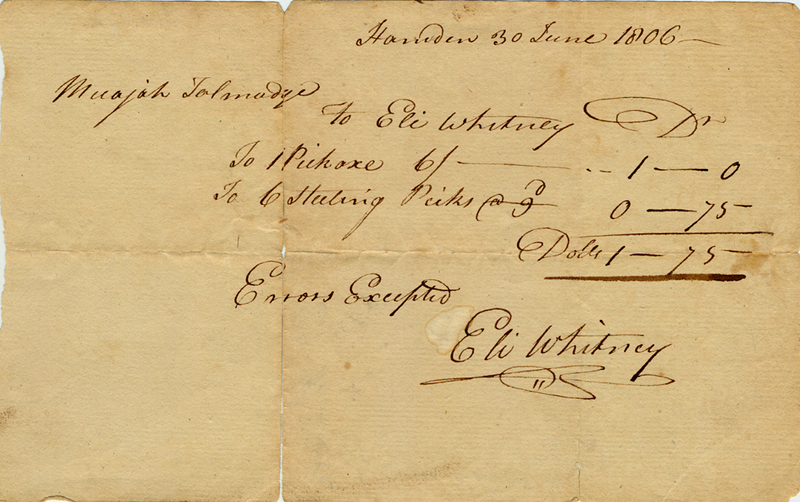 Hamden 30 June 1806 —
Micajah Talmadge
To Eli Whitney Dr
To 1 Pickaxe 6/ — 1 — 0
To 6 Steeling Picks @ 9d 0 — 75
Dolls 1 — 75
Errors Excepted
Eli Whitney